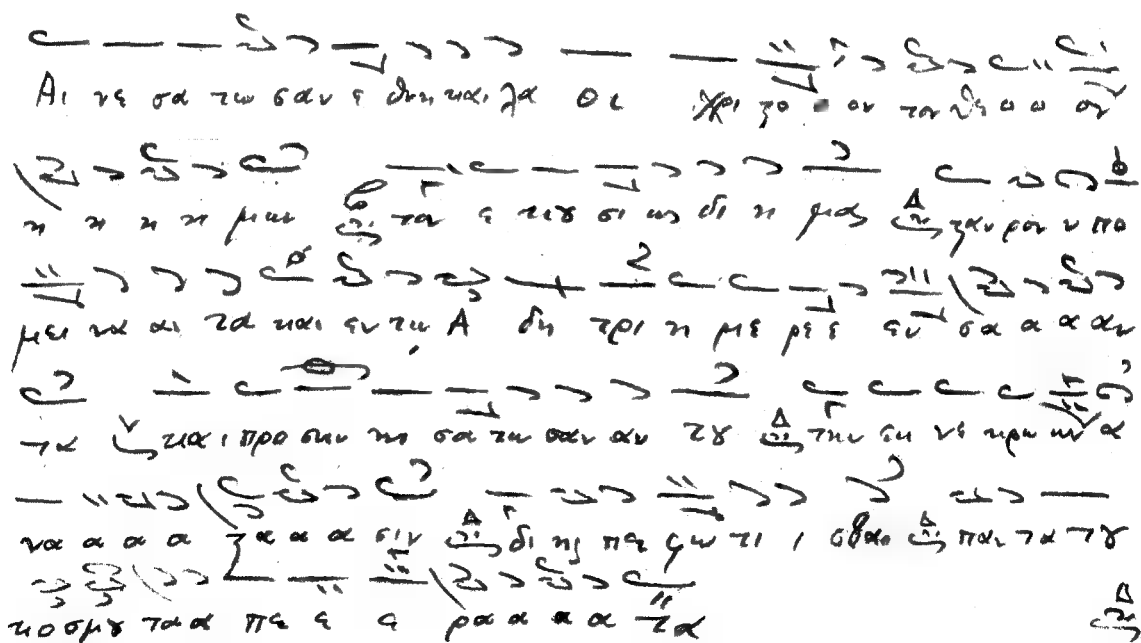 Αι νε σα τω σαν ε θνη και λα οι Χρι ϛο ο ον τον θε ο ο ον
η η η η μων τον ε κου σι ως δι η μας ϛαυ ρον υ πο
μει να αι τα και εν τω Α δη τρι η με ρε ε εν σα α α αν
τα και προ σκυ νη σα τω σαν αυ του την εκ νε κρω ων α
να α α α ϛα α α σιν δι ης πε φω τι ι σθαι παν τα του
κο σμου τα α πε ε ε ρα α α α τα